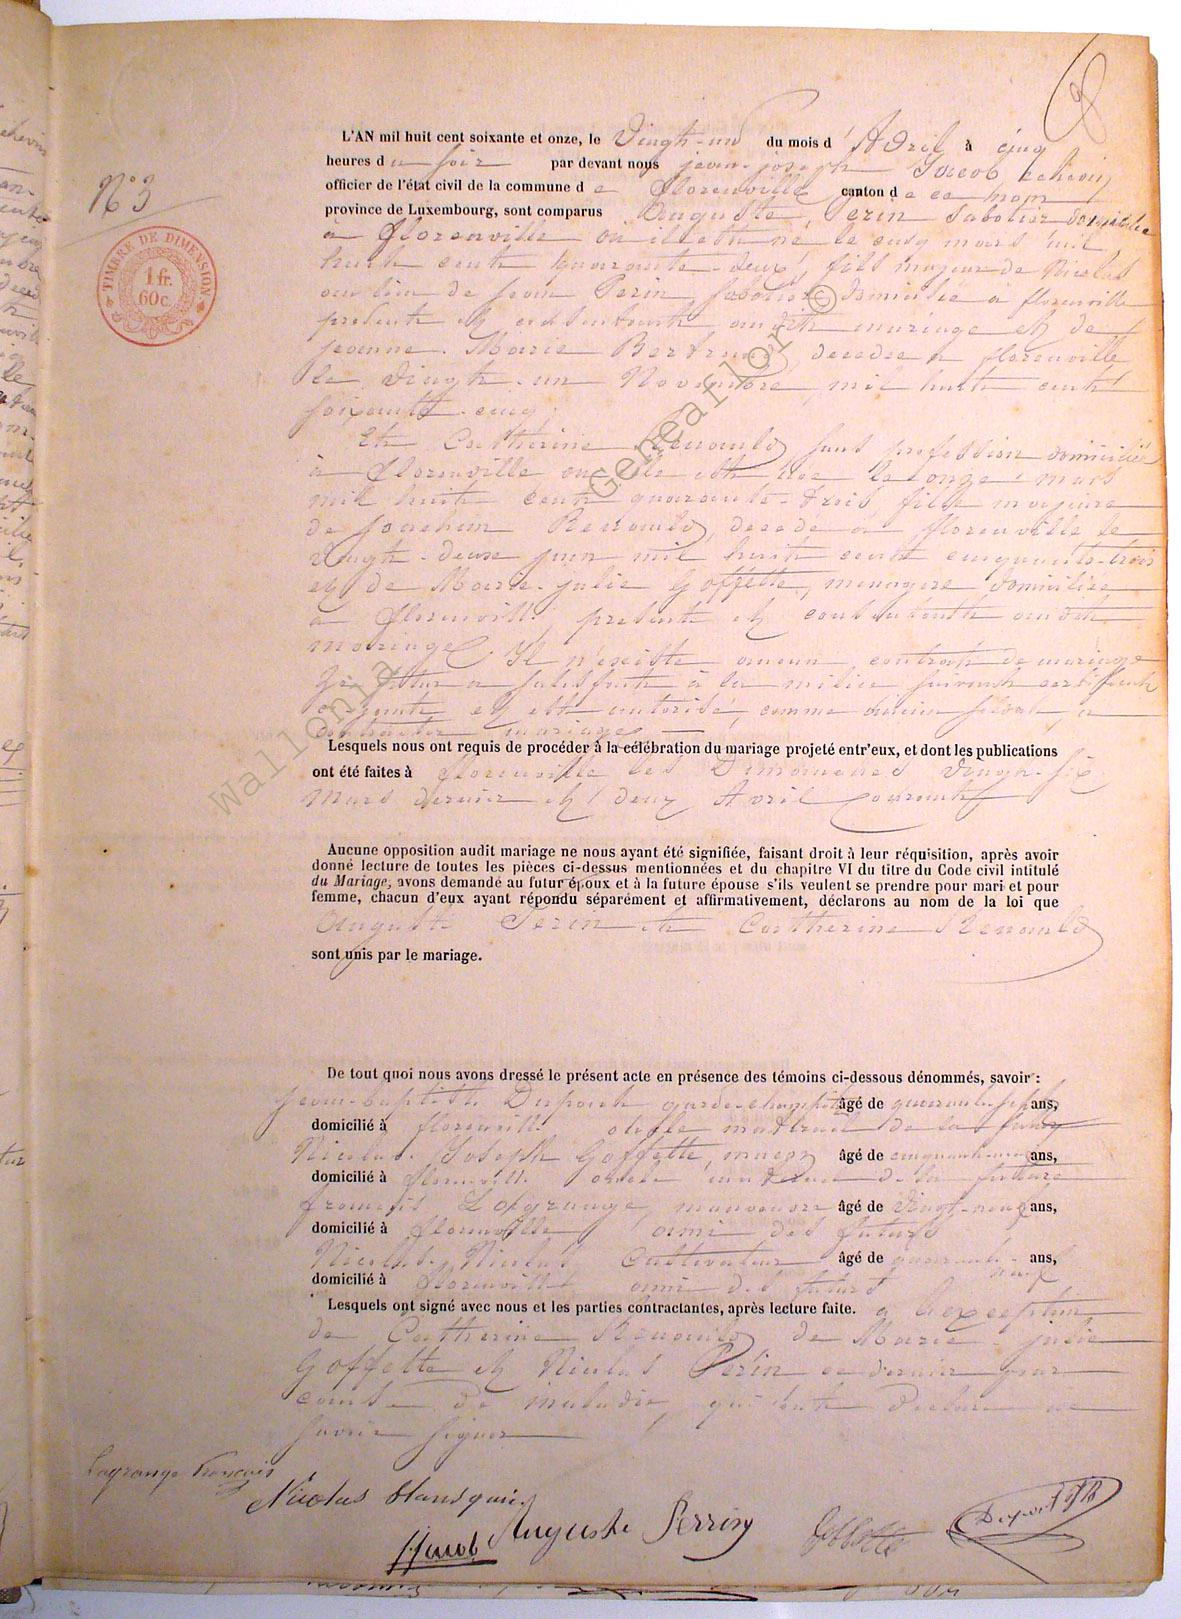 N° 3
TIMBRE DE DIMENSION
1 fr.
60c.
L'AN mil huit cent soixante et onze, le Vingt-un du mois d'Avril à cinq
heures du soir par devant nous jean-joseph Jacob echevin
officier de l'état civil de la commune de florenville canton de ce nom
province de Luxembourg, sont comparus Auguste Perin sabotier domicilié
à florenville ou il est né le cinq mars mil
huit cent quarante-deux, fils majeur de Nicolas
au lieu de Jean Perin, sabotier domicilié à florenville
présent et consentant audit mariage et de
jeanne. Marie Bertrand, decedée a florenville
le Vingt-un Novembre mil huit cent
soixante-cinq.
Et Catherine Renauld, sans profession domiciliée
à florenville ou elle est née le onze mars
mil huit cent quarante-trois, fille majeure
de Joachim Renauld, decede a florenville le
Vingt-deux juin mil huit cent cinquante-trois
et de Marie-julie Goffette, menagere domiciliée
a florenville presente et consentante audit
mariage. Il n'existe aucun contrat de mariage
Le futur a satisfait à la milice suivant certificat
et est autorisé, comme à
contracter mariage
Lesquels nous ont requis de procéder à la célébration du mariage projeté entr'eux, et dont les publications
ont été faites à florenville les Dimanches Vingt-six
Mars dernier et deux Avril courant
Aucune opposition audit mariage ne nous ayant été signifiée, faisant droit à leur réquisition, après avoir
donné lecture de toutes les pièces ci-dessus mentionnées et du chapitre VI du titre du Code civil intitulé
du Mariage, avons demandé au futur époux et à la future épouse s'ils veulent se prendre pour mari et pour
femme, chacun d'eux ayant répondu séparément et affirmativement, déclarons au nom de la loi que
Auguste Perin et Catherine Renauld
sont unis par le mariage.
De tout quoi nous avons dressé le présent acte en présence des témoins ci-dessous dénommés, savoir :
Jean-baptiste Dupont garde-champêtre âgé de quarante-sept ans,
domicilié à florenville oncle maternel de la future
Nicolas. Joseph Goffette, âgé de ans,
domicilié à florenville oncle maternel de la future
françois Lagrange, manoeuvre âgé de vingt-neuf ans,
domicilié à florenville ami des futurs
Nicolas. Nicolas Cultivateur âgé de quarante-neuf ans,
domicilié à florenville ami des futurs
Lesquels ont signé avec nous et les parties contractantes, après lecture faite. a l'exception
de Catherine Renauld de Marie-julie
Goffette et Nicolas Perin ce dernier pour
cause de maladie, qui ont declaré ne
savoir signer
Lagrange François
Nicolas
Auguste Perrin
Goffette
Dupont JB
J Jacob
Wallonia Geneaflor ©